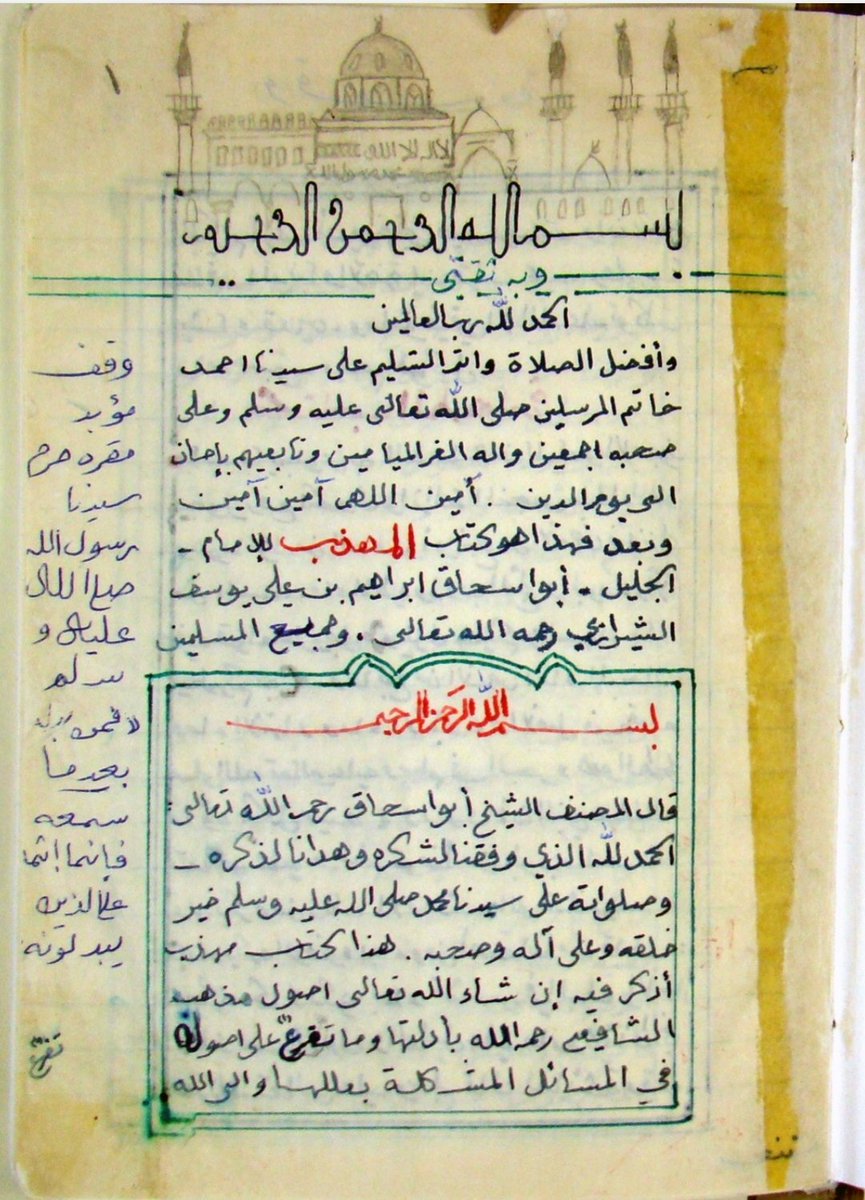 ١
بسم الله الرحمن الرحيم
وبه ثقتي
الحمد لله رب العالمين
وأفضل الصلاة واتم التسليم على سيدنا احمد
خاتم المرسلين صلى الله تعالى عليه وسلم وعلى
صحبه اجمعين واله الغر الميامين وتابعيهم بإحسان
الى يوم الدين . أمين اللهم آمين آمين
وبعد فهذا هو كتاب المهذب للإمام -
الجليل - أبو اسحاق ابراهيم بن علي يوسف
الشيرازي رحمه الله تعالى . وجميع المسلمين
بسم الله الرحمن الرحيم
قال المصنف الشيخ أبو اسحاق رحمه الله تعالى:
الحمد لله الذي وفقنا لشكره وهدانا لذكره -
وصلواته على سيدنا محمد صلى الله عليه وسلم خير
خلقه وعلى آله وصحبه . هذا كتاب مهذب
أذكر فيه إن شاء الله تعالى اصول مذهب
الشافعي رحمه الله بأدلتها وما تفرع على اصوله
في المسائل المشكلة بعللها والى الله
وقف
مؤبد
مقره حرم
سيدنا
رسول الله
صلى الله
عليه و
سلم
فمن بدله
بعدما
سمعه
فإنما إثمه
على الذين
يبدلونه
تفرع